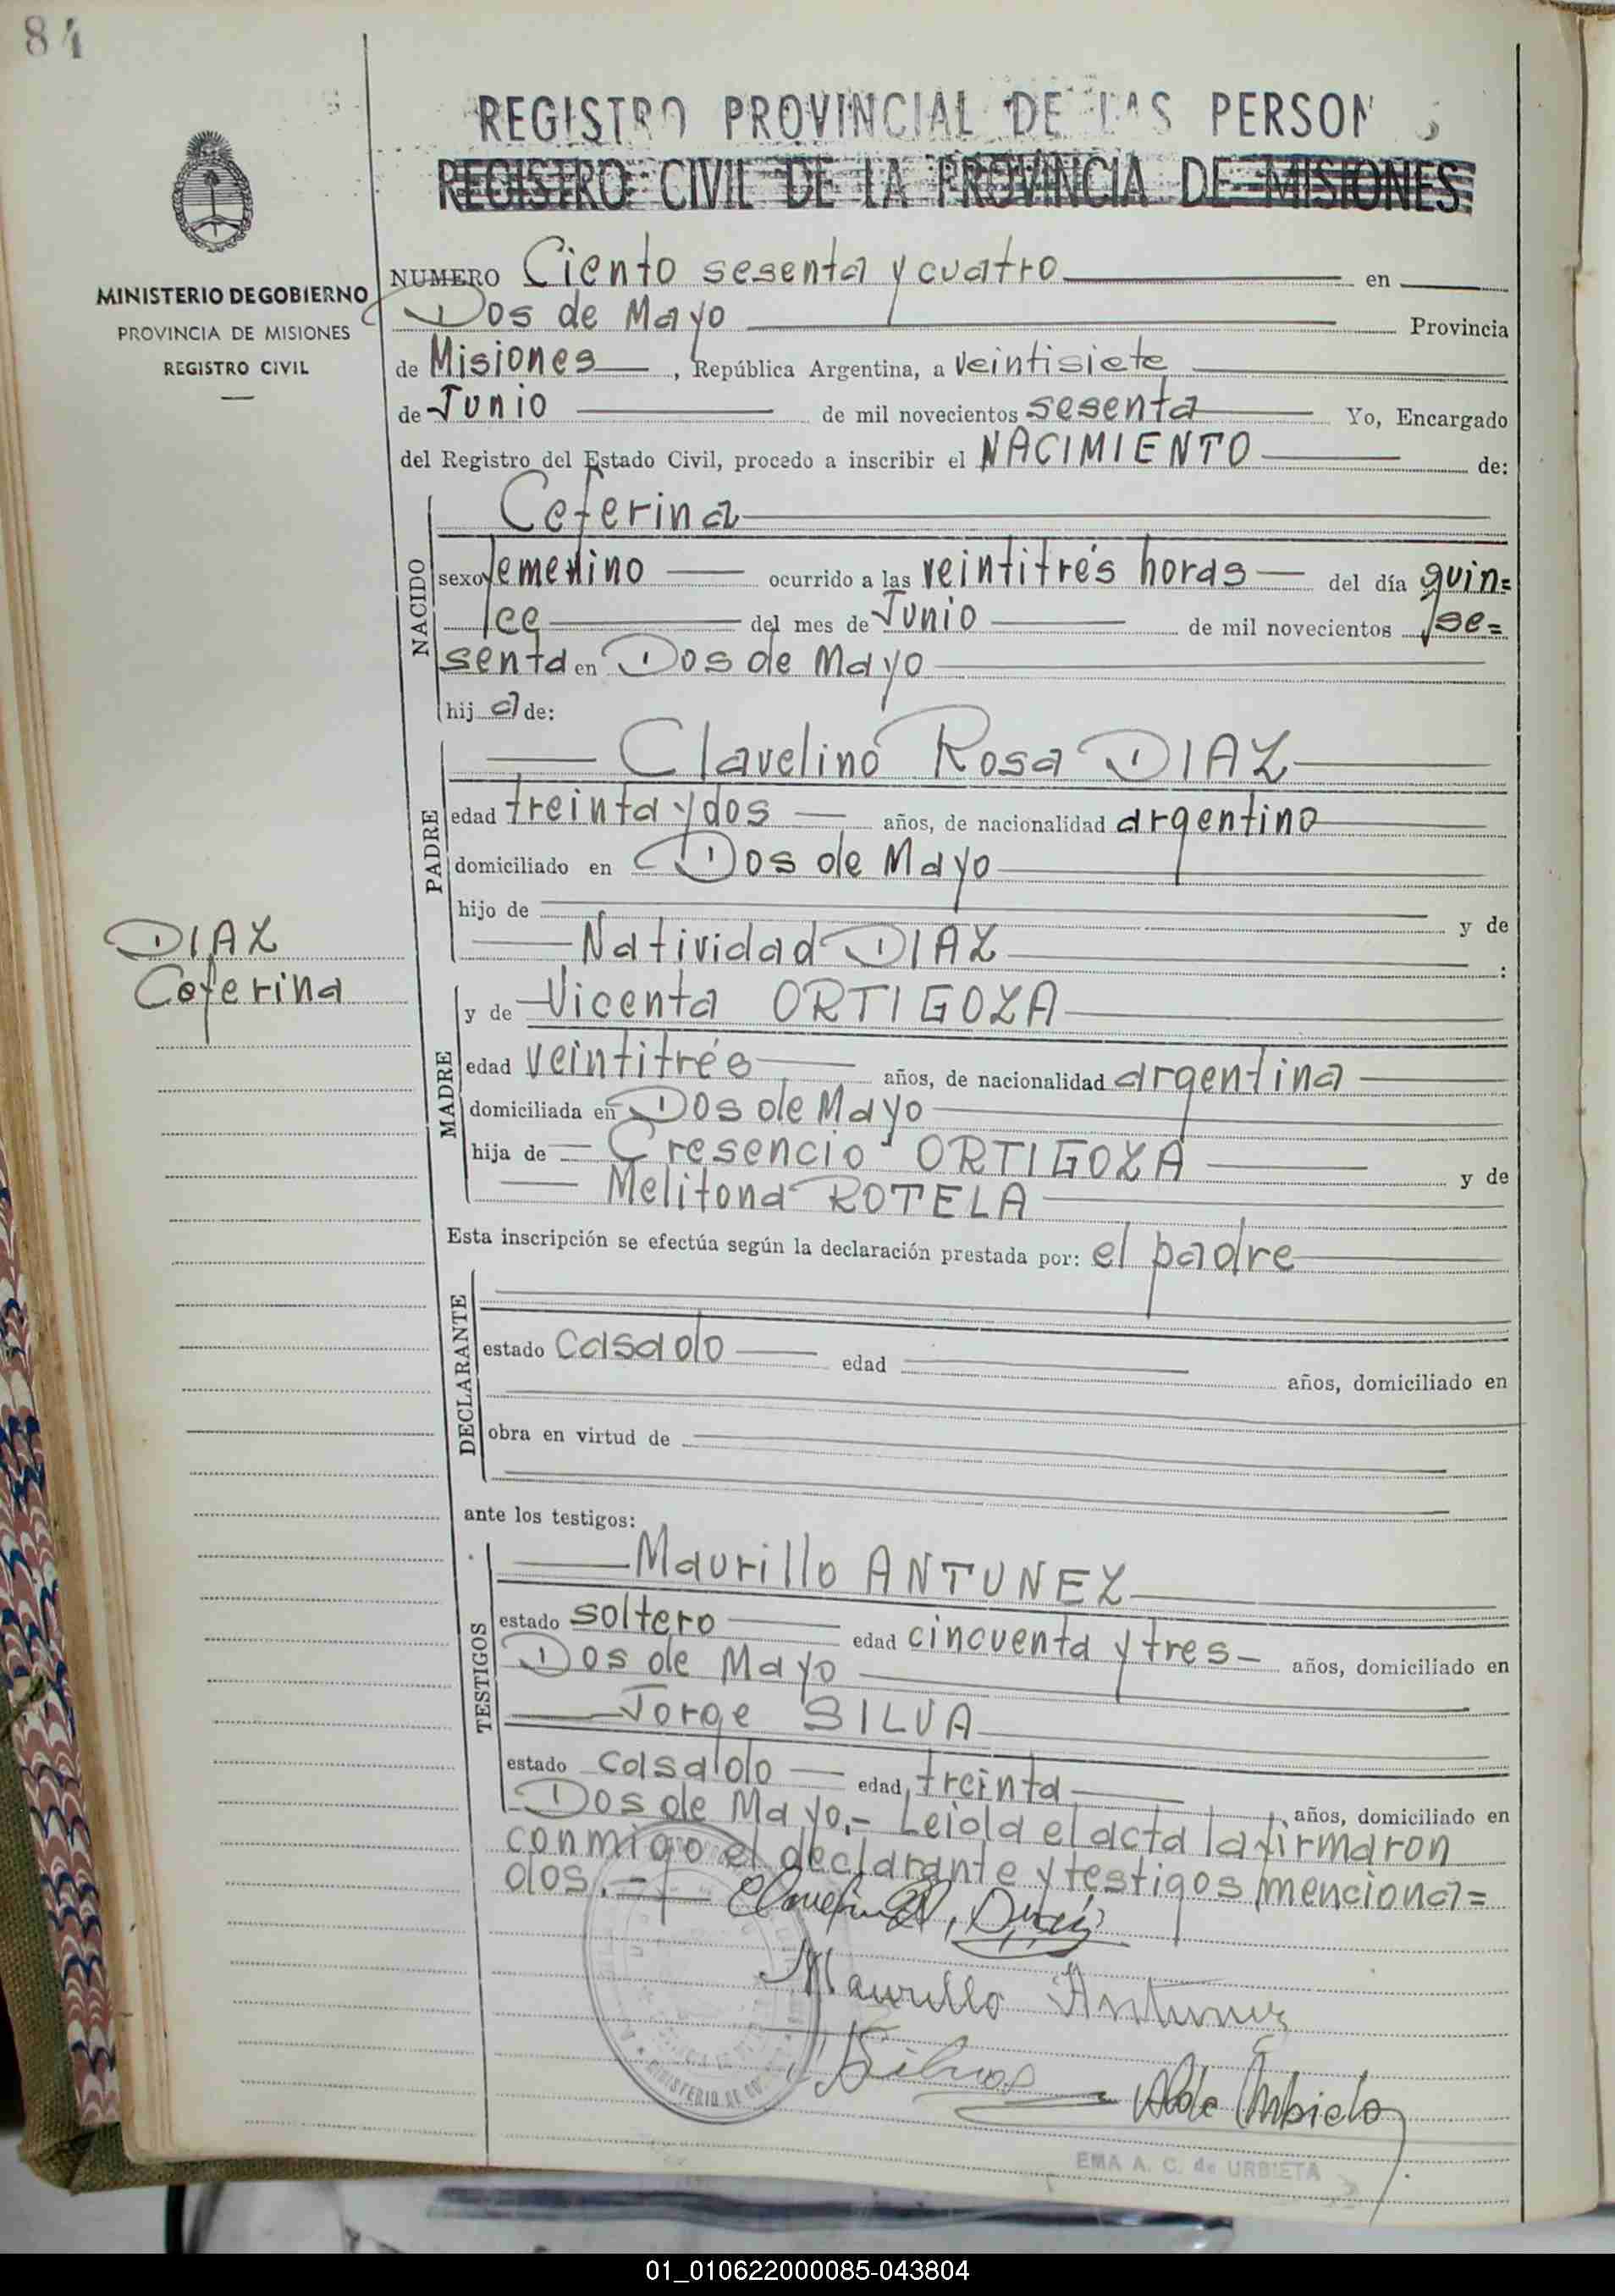 84
REGISTRO PROVINCIAL DE LAS PERSON S
REGISTRO CIVIL DE LA PROVINCIA DE MISIONES
MINISTERIO DE GOBIERNO
PROVINCIA DE MISIONES
REGISTRO CIVIL
NUMERO Ciento sesenta y cuatro en
Dos de Mayo Provincia
de Misiones, República Argentina, a veintisiete
de Junio de mil novecientos sesenta Yo, Encargado
del Registro del Estado Civil, procedo a inscribir el NACIMIENTO de:
NACIDO
Ceferina
sexo femenino ocurrido a las veintitrés horas del día quin=
ce del mes de Junio de mil novecientos se=
senta en Dos de Mayo
hij a de:
PADRE
Clavelino Rosa DIAZ
edad treinta y dos años, de nacionalidad argentino
domiciliado en Dos de Mayo
hijo de y de
Natividad DIAZ :
DIAZ
Ceferina
MADRE
y de Vicenta ORTIGOZA
edad veintitrés años, de nacionalidad argentina
domiciliada en Dos de Mayo
hija de Cresencio ORTIGOZA y de
Melitona ROTELA
Esta inscripción se efectúa según la declaración prestada por: el padre
DECLARANTE
estado casado edad años, domiciliado en
obra en virtud de
ante los testigos:
TESTIGOS
Maurillo ANTUNEZ
estado soltero edad cincuenta y tres años, domiciliado en
Dos de Mayo
Jorge SILVA
estado casado edad treinta años, domiciliado en
Dos de Mayo.- Leida el acta la firmaron
conmigo el declarante y testigos menciona=
dos.-
Maurillo Antunez
Silva
MINISTERIO DE GO
EMA A. C. de URBIETA
01_010622000085-043804